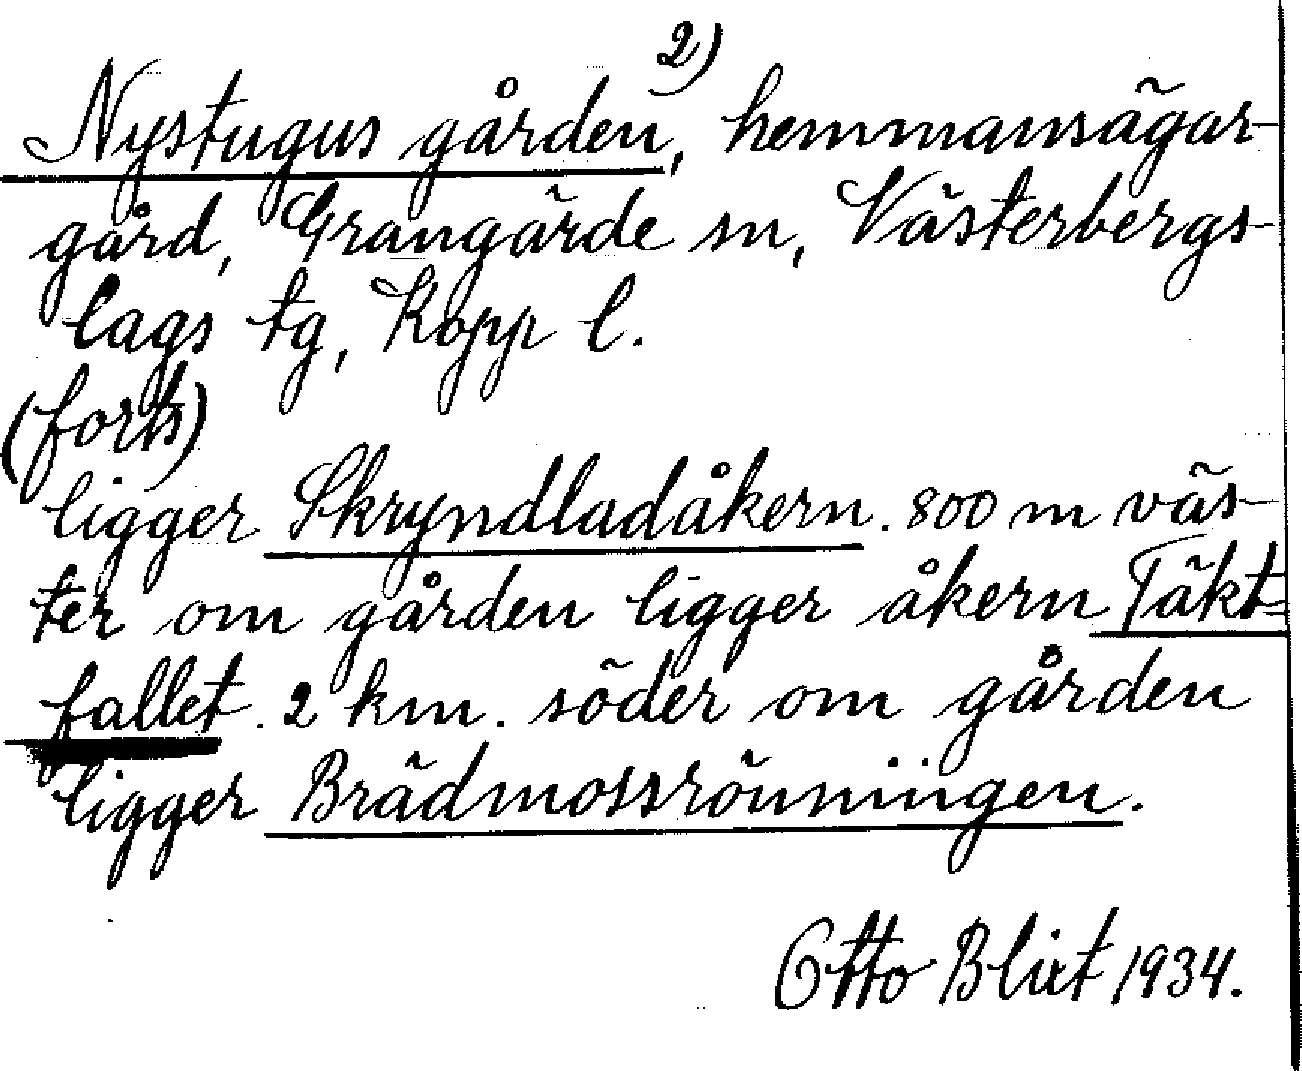 2)
Nystugus gården, hemmansägar-
gård, Grangärde sn, Västerbergs-
lags tg, Kopp l.
(forts)
ligger Skryndladåkern. 800 m väs-
ter om gården ligger åkern Täkt-
fallet. 2 km. söder om gården
ligger Brädmossröningen.
Otto Blixt 1934.